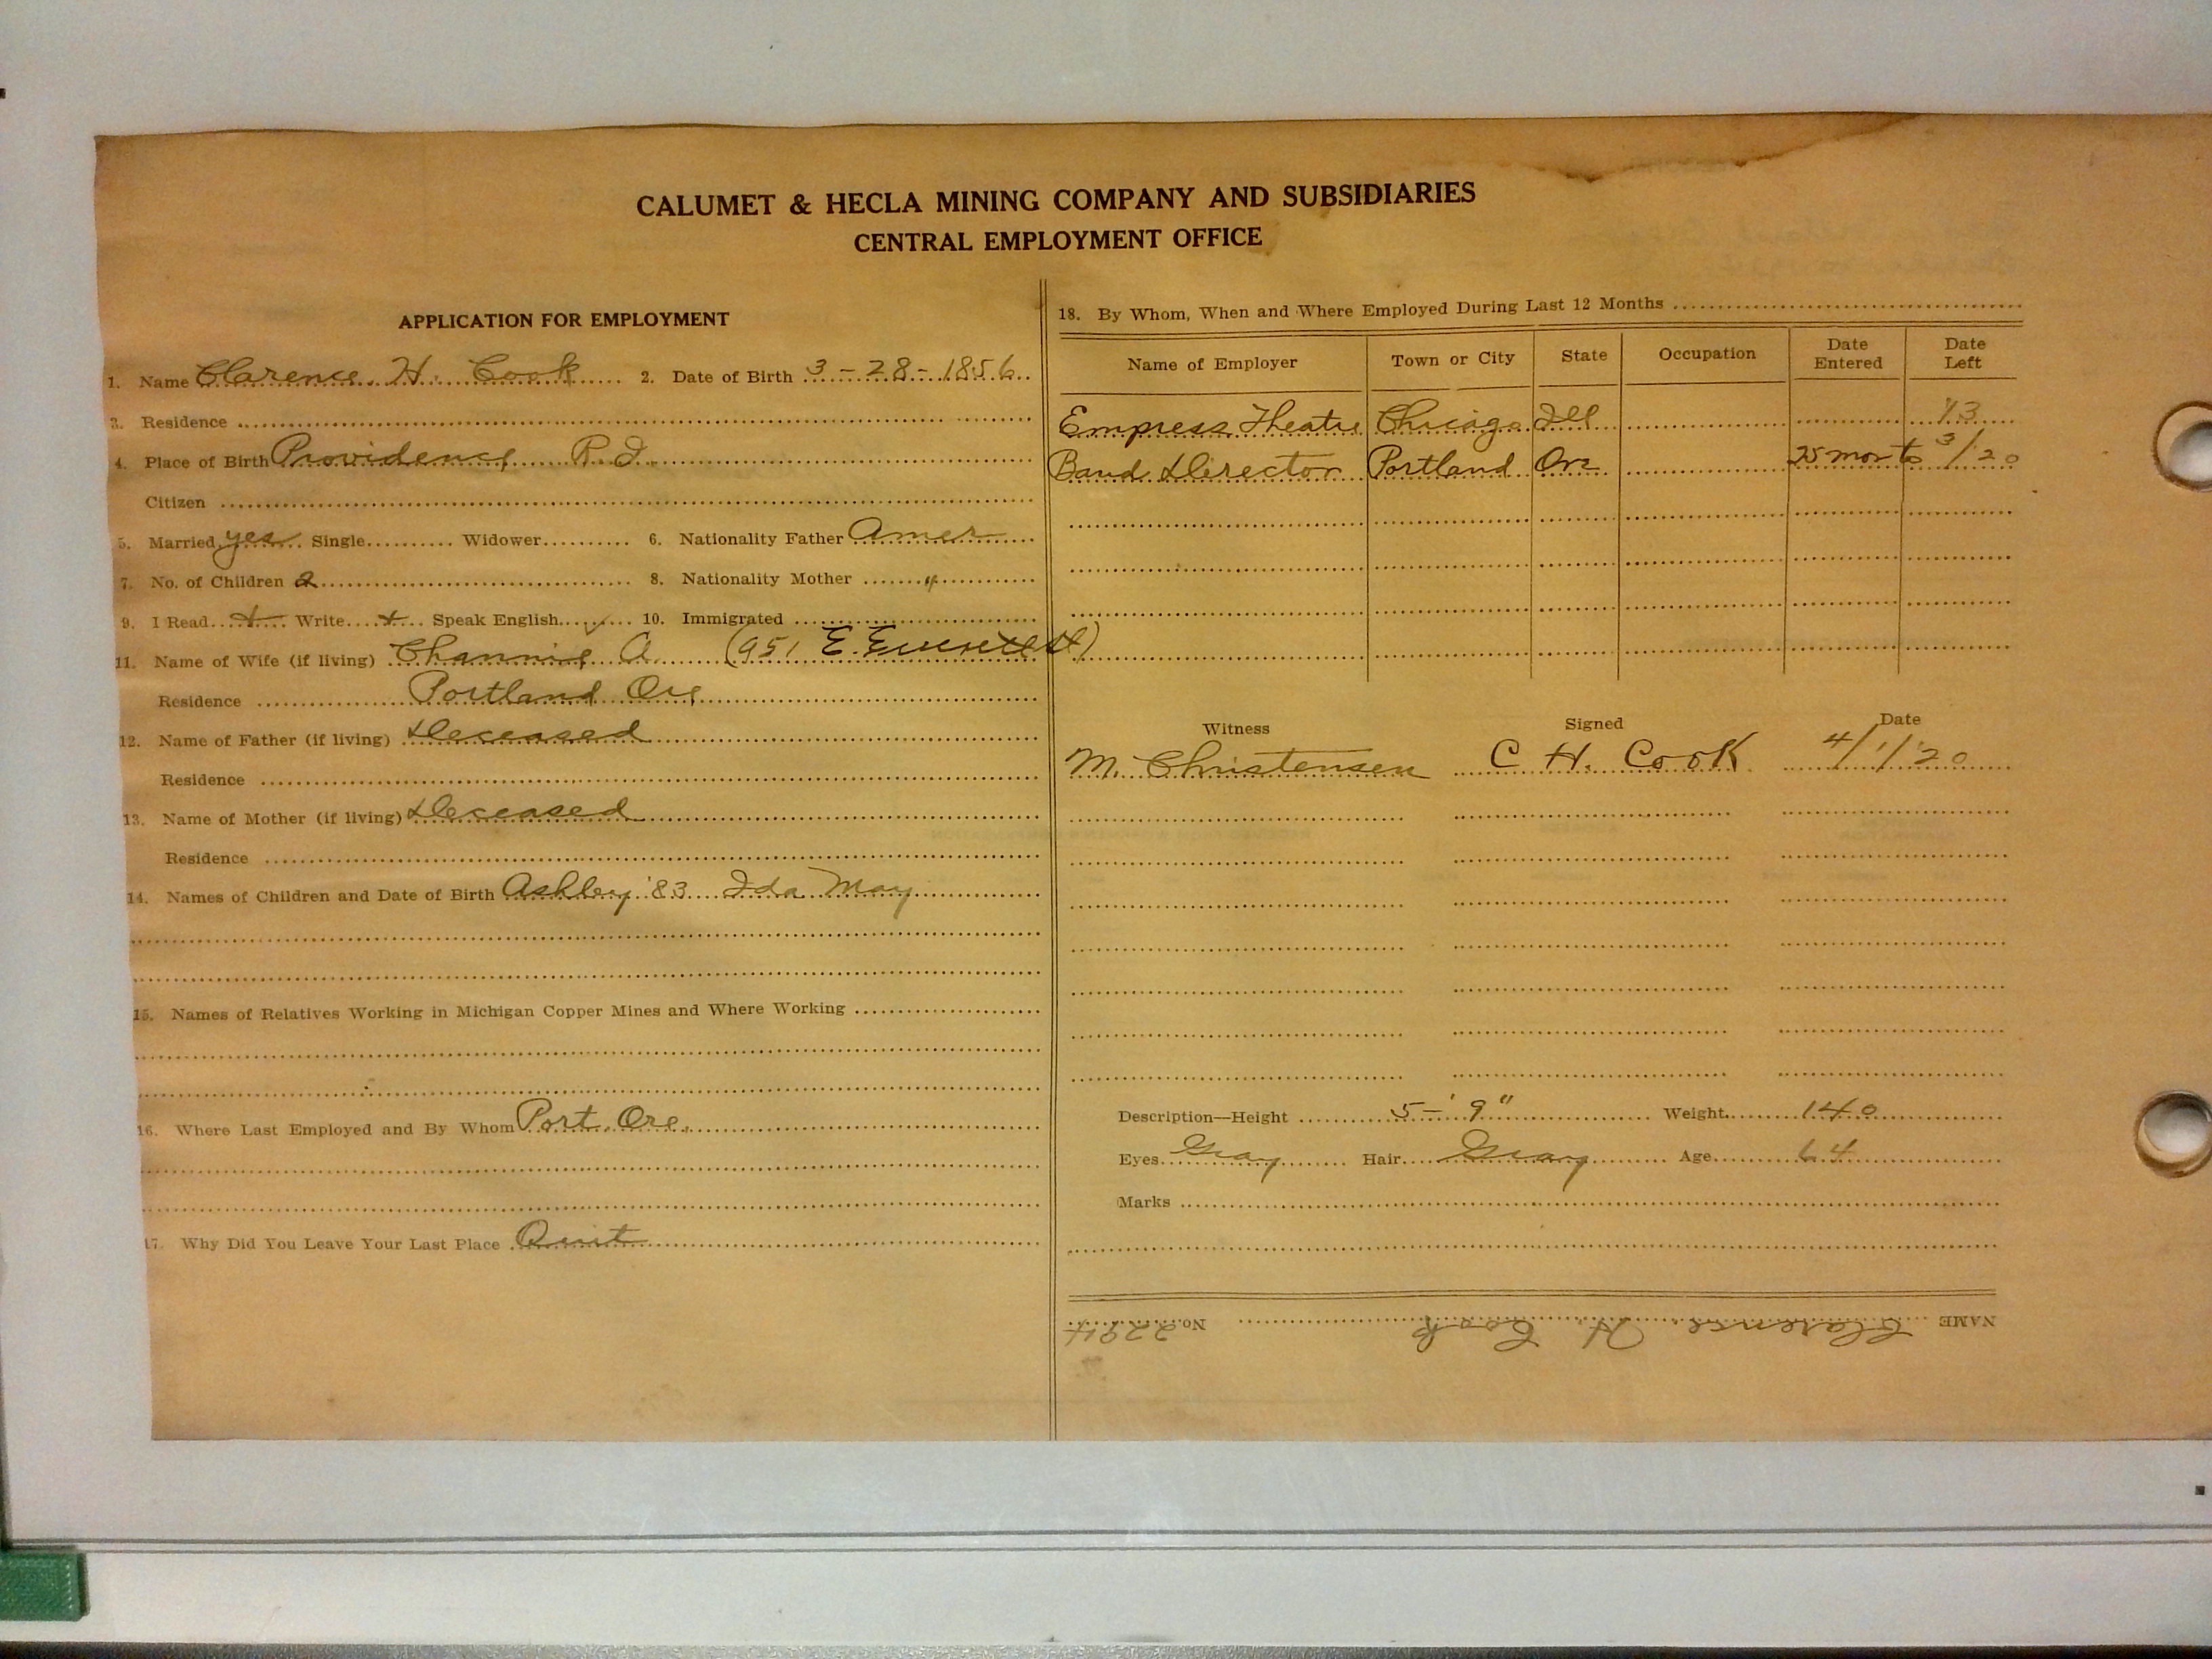 CALUMET & HECLA MINING COMPANY AND SUBSIDIARIES
CENTRAL EMPLOYMENT OFFICE
APPLICATION FOR EMPLOYMENT
1. Name Clarence H. Cook 2. Date of Birth 3-28-1856
3. Residence
4. Place of Birth Providence R.I.
Citizen
5. Married yes Single Widower 6. Nationality Father Amer
7. No. of Children 2 8. Nationality Mother "
9. I Read + Write + Speak English ✓ 10. Immigrated
11. Name of Wife (if living) Channie A. (951 E. Everett St)
Residence Portland Ore
12. Name of Father (if living) Deceased
Residence
13. Name of Mother (if living) Deceased
Residence
14. Names of Children and Date of Birth Ashley '83 Ida May
15. Names of Relatives Working in Michigan Copper Mines and Where Working
16. Where Last Employed and By Whom Port. Ore.
17. Why Did You Leave Your Last Place Quit
18. By Whom, When and Where Employed During Last 12 Months
Name of Employer Town or City State Occupation Date Entered Date Left
Empress Theatre Chicago Ill '13
Band Director Portland Ore 25 mon to 3/20
Witness Signed Date
M. Christensen C H. Cook 4/1/20
Description—Height 5-' 9" Weight 140
Eyes Gray Hair Gray Age 64
Marks
NAME Clarence H. Cook No. 2294